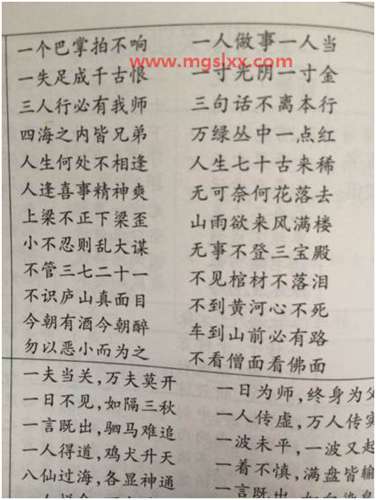 一个巴掌拍不响
一失足成千古恨
三人行必有我师
四海之内皆兄弟
人生何处不相逢
人逢喜事精神爽
上梁不正下梁歪
小不忍则乱大谋
不管三七二十一
不识庐山真面目
今朝有酒今朝醉
勿以恶小而为之
一人做事一人当
www.mgslxx.com
一寸光阴一寸金
三句话不离本行
万绿丛中一点红
人生七十古来稀
无可奈何花落去
山雨欲来风满楼
无事不登三宝殿
不见棺材不落泪
不到黄河心不死
车到山前必有路
不看僧面看佛面
一夫当关,万夫莫开
一日不见,如隔三秋
一言既出,驷马难追
一人得道,鸡犬升天
八仙过海,各显神通
一日为师,终身为父
一人传虚,万人传实
一波未平,一波又起
一着不慎,满盘皆输